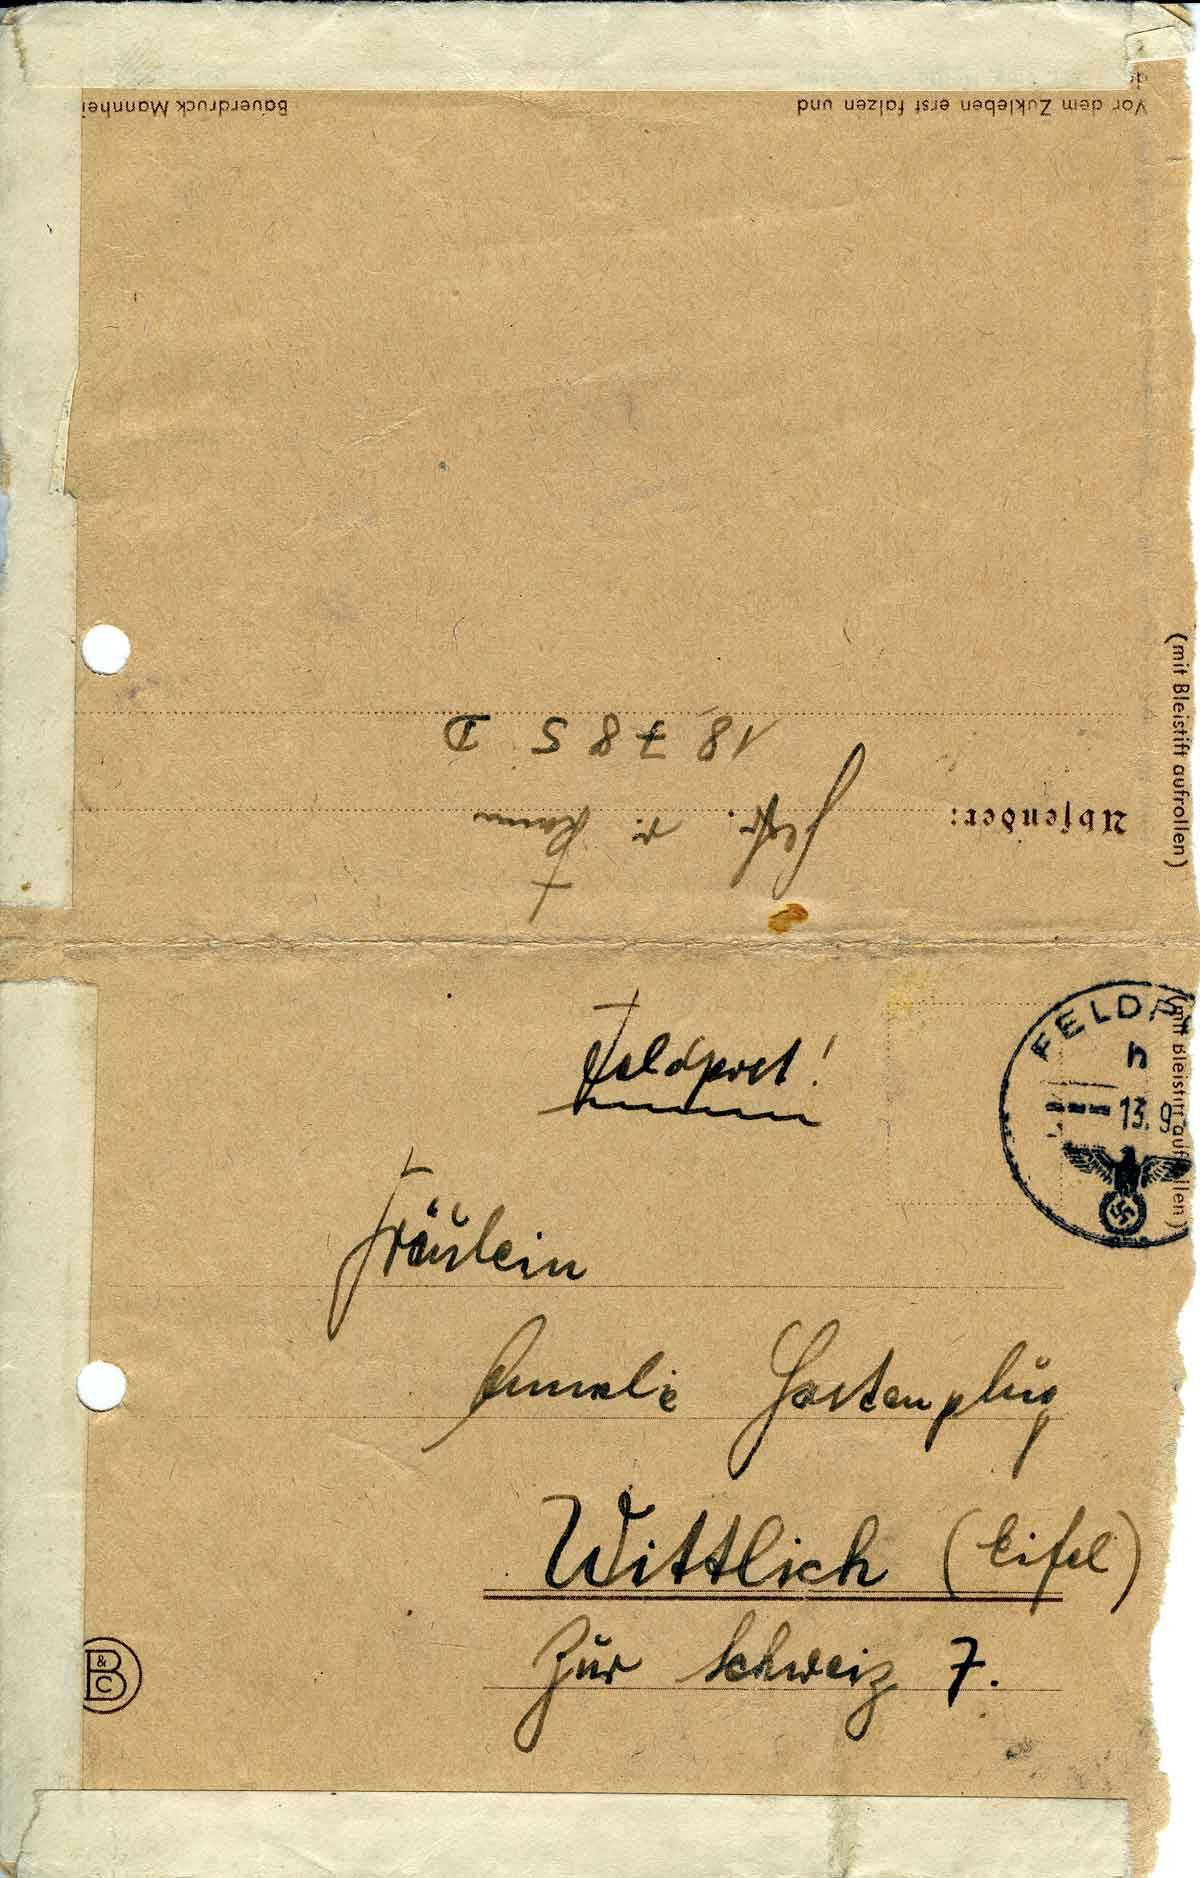 Vor dem Zukleben erst falzen und
Bauerdruck Mannhei
(mit Bleistift aufrollen)
Absender:
18785 D
Feldpost!
FELDP
h
13. 9.
(mit Bleistift aufrollen)
Fräulein
Annelie Hostenplug
Wittlich (Eifel)
Zur Schweiz 7.
B & C